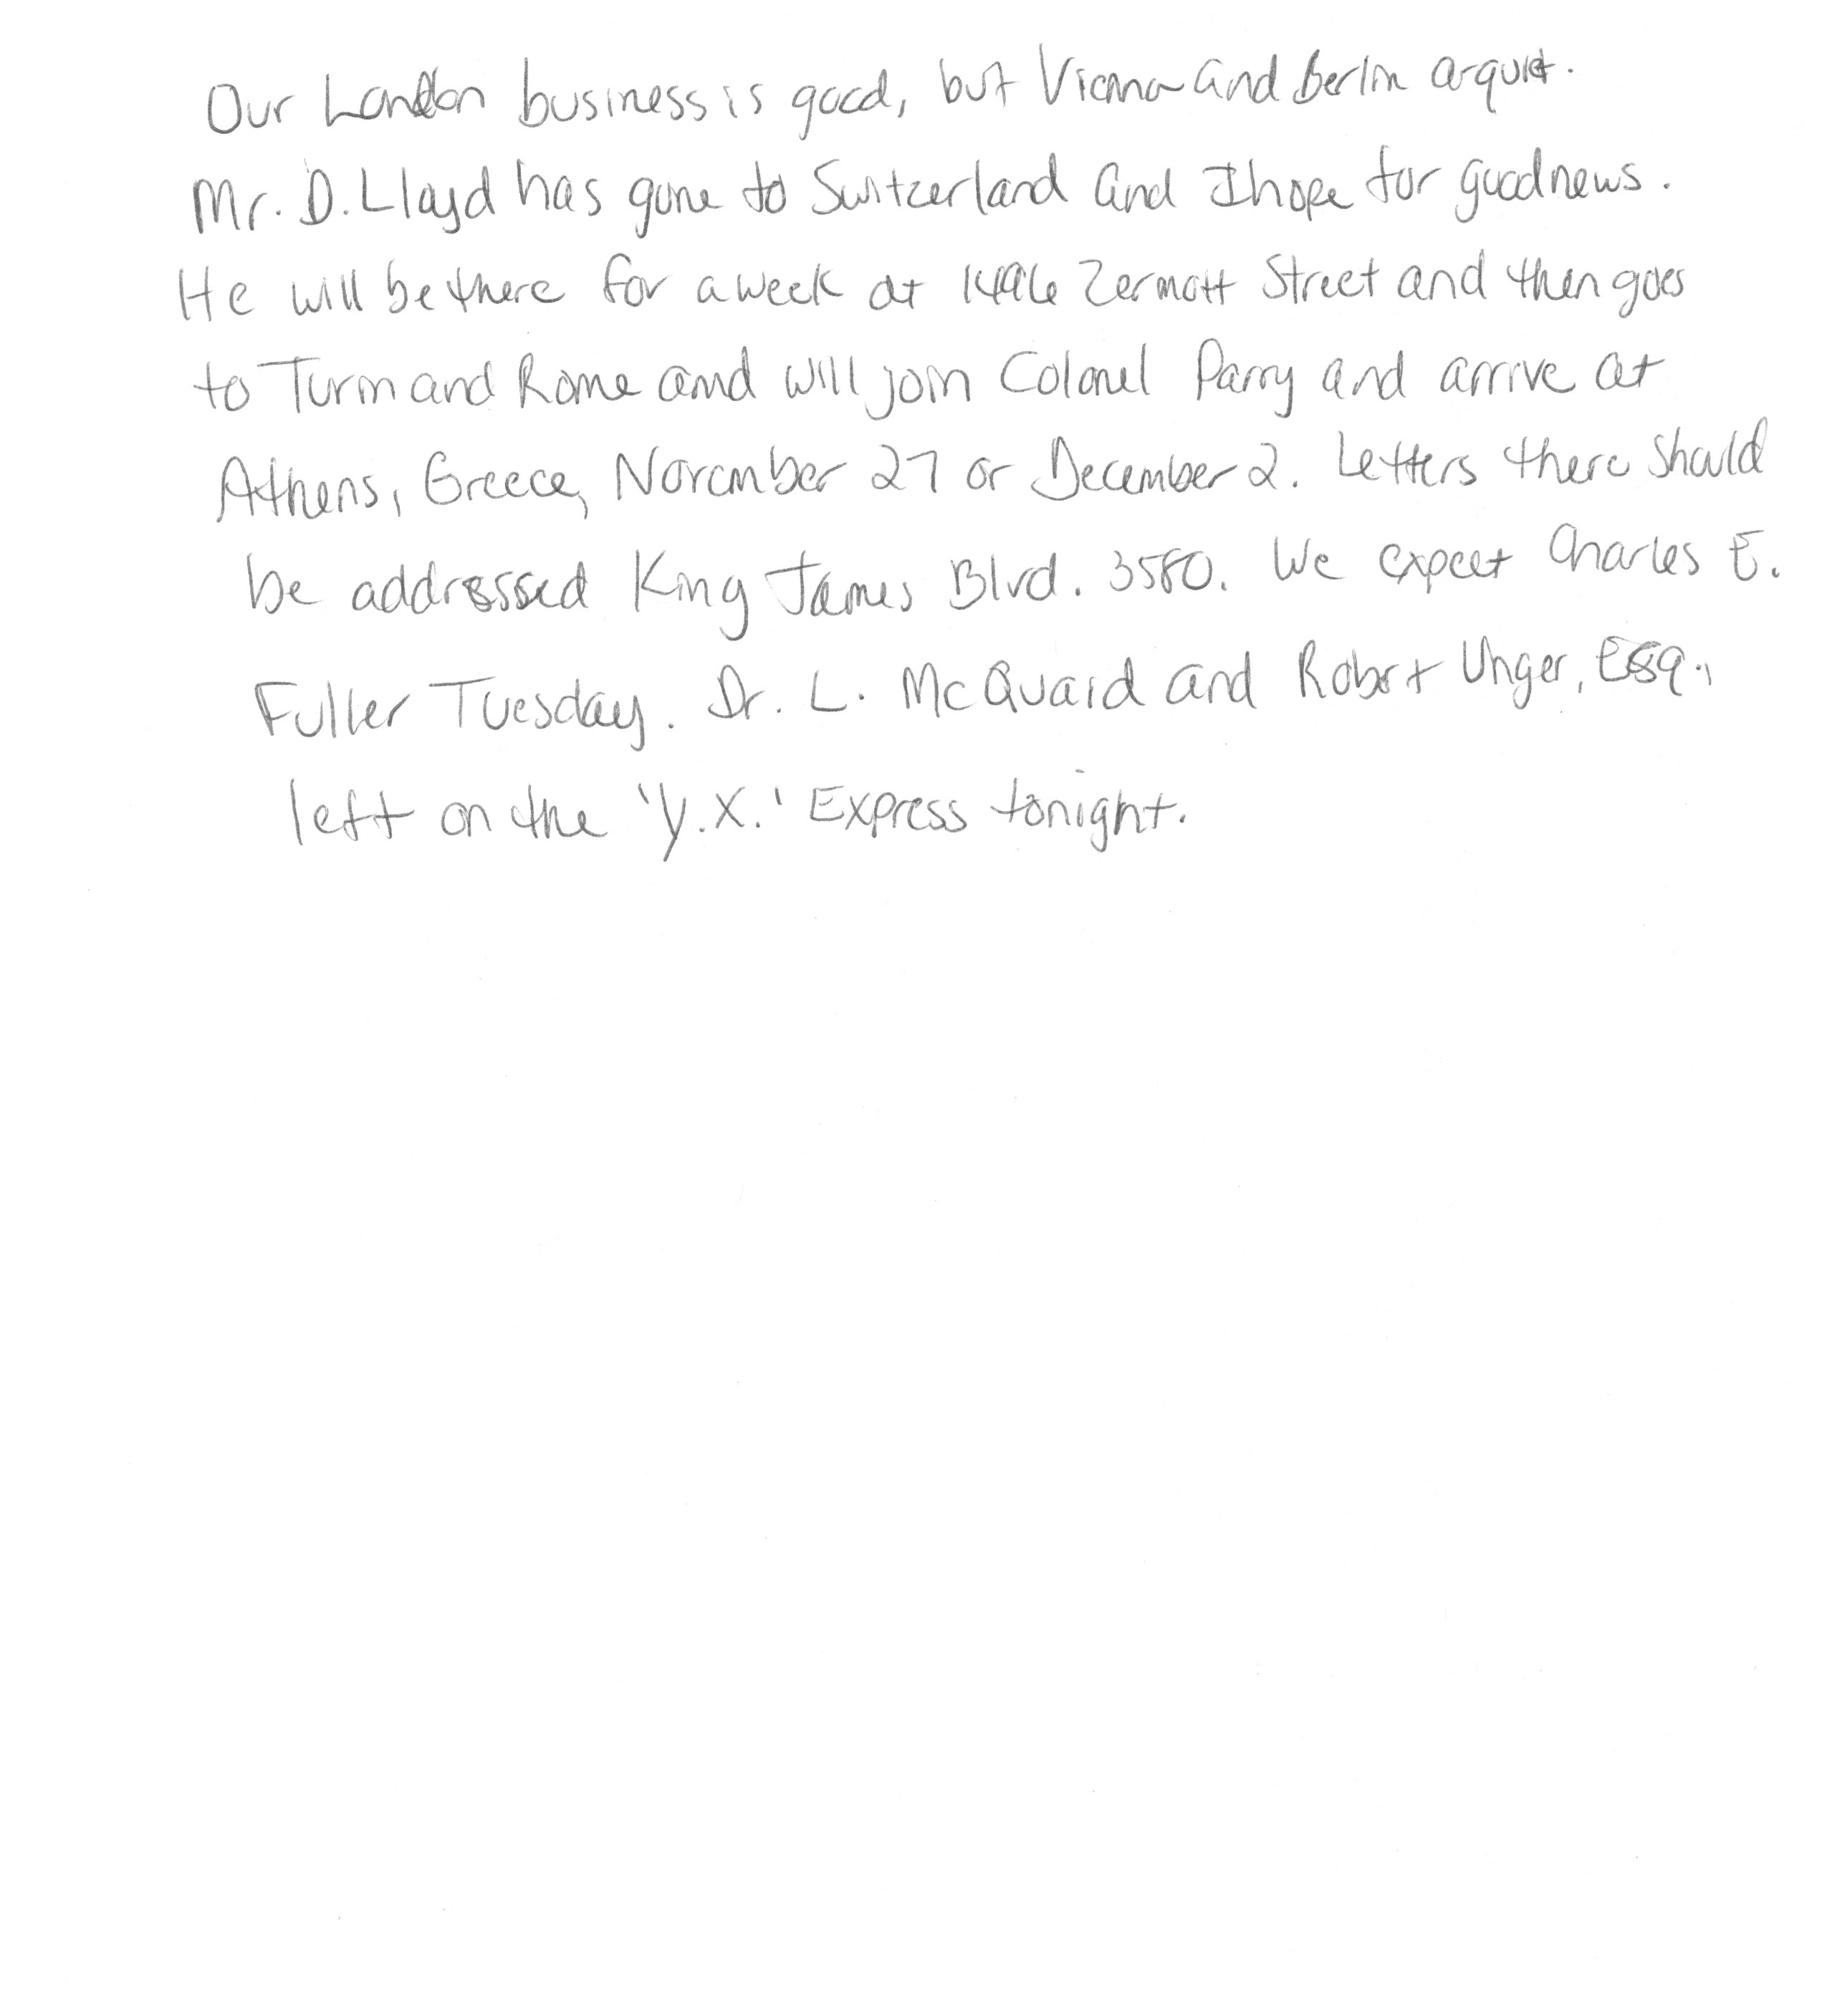 Our London business is good, but Vienna and Berlin ar quiet.
Mr. D. Lloyd has gone to Switzerland and I hope for good news.
He will be there for a week at 1496 Zermott Street and then goes
to Turin and Rome and will join Colonel Parry and arrive at
Athens, Greece, November 27 or December 2. Letters there should
be addressed King James Blvd. 3580. We expect Charles E.
Fuller Tuesday. Dr. L. McQuaid and Robert Unger, Esq.,
left on the 'Y.X.' Express tonight.